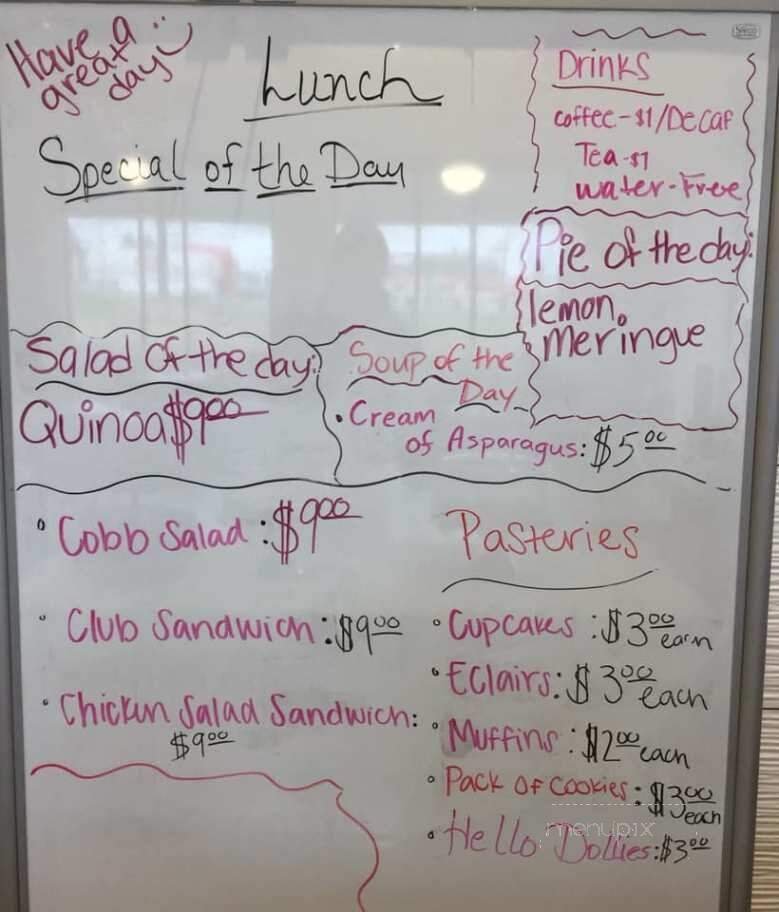 Have a
great
day! :)
Lunch
Special of the Day
Drinks
coffee-$1/Decaf
Tea-$1
water-Free
Pie of the day:
lemon
meringue
Salad of the day:
Quinoa $9.00
Soup of the
Day
• Cream
of Asparagus: $5.00
• Cobb Salad: $9.00
• Club Sandwich: $9.00
• Chicken Salad Sandwich:
$9.00
Pasteries
• Cupcakes: $3.00 each
• Eclairs: $3.00 each
• Muffins: $2.00 each
• Pack of Cookies: $3.00 each
• Hello Dollies: $3.00
menupix